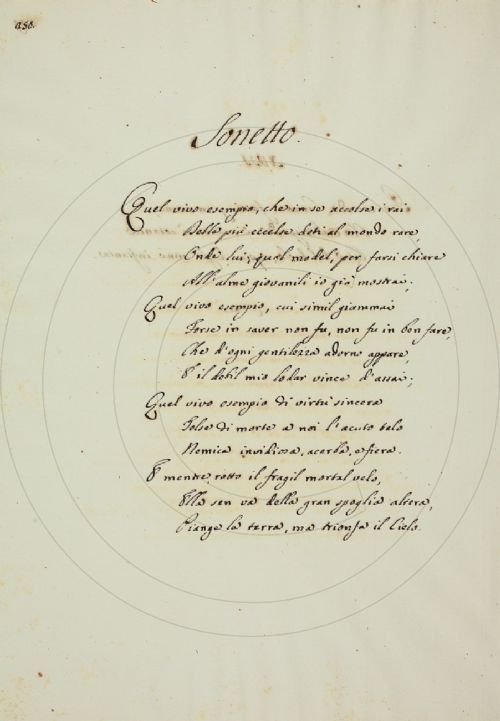 258.
Sonetto.
Quel vivo esempio, che in se accolse i rai
Delle più eccelse doti al mondo rare,
Onde lui, qual model, per farsi chiare
All'alme giovanili io già mostrai;
Quel vivo esempio, cui simil giammai
Forse in saver non fu, non fu in ben fare,
Che d'ogni gentilezza adorno appare,
E il debil mio lodar vince d'assai;
Quel vivo esempio di virtù sincera
Tolse di morte a noi l'acuto telo
Nemica invidiosa, acerba, e fiera.
E mentre rotto il fragil mortal velo,
Ella sen va della gran spoglia altera,
Piange la terra, ma trionfa il Cielo.